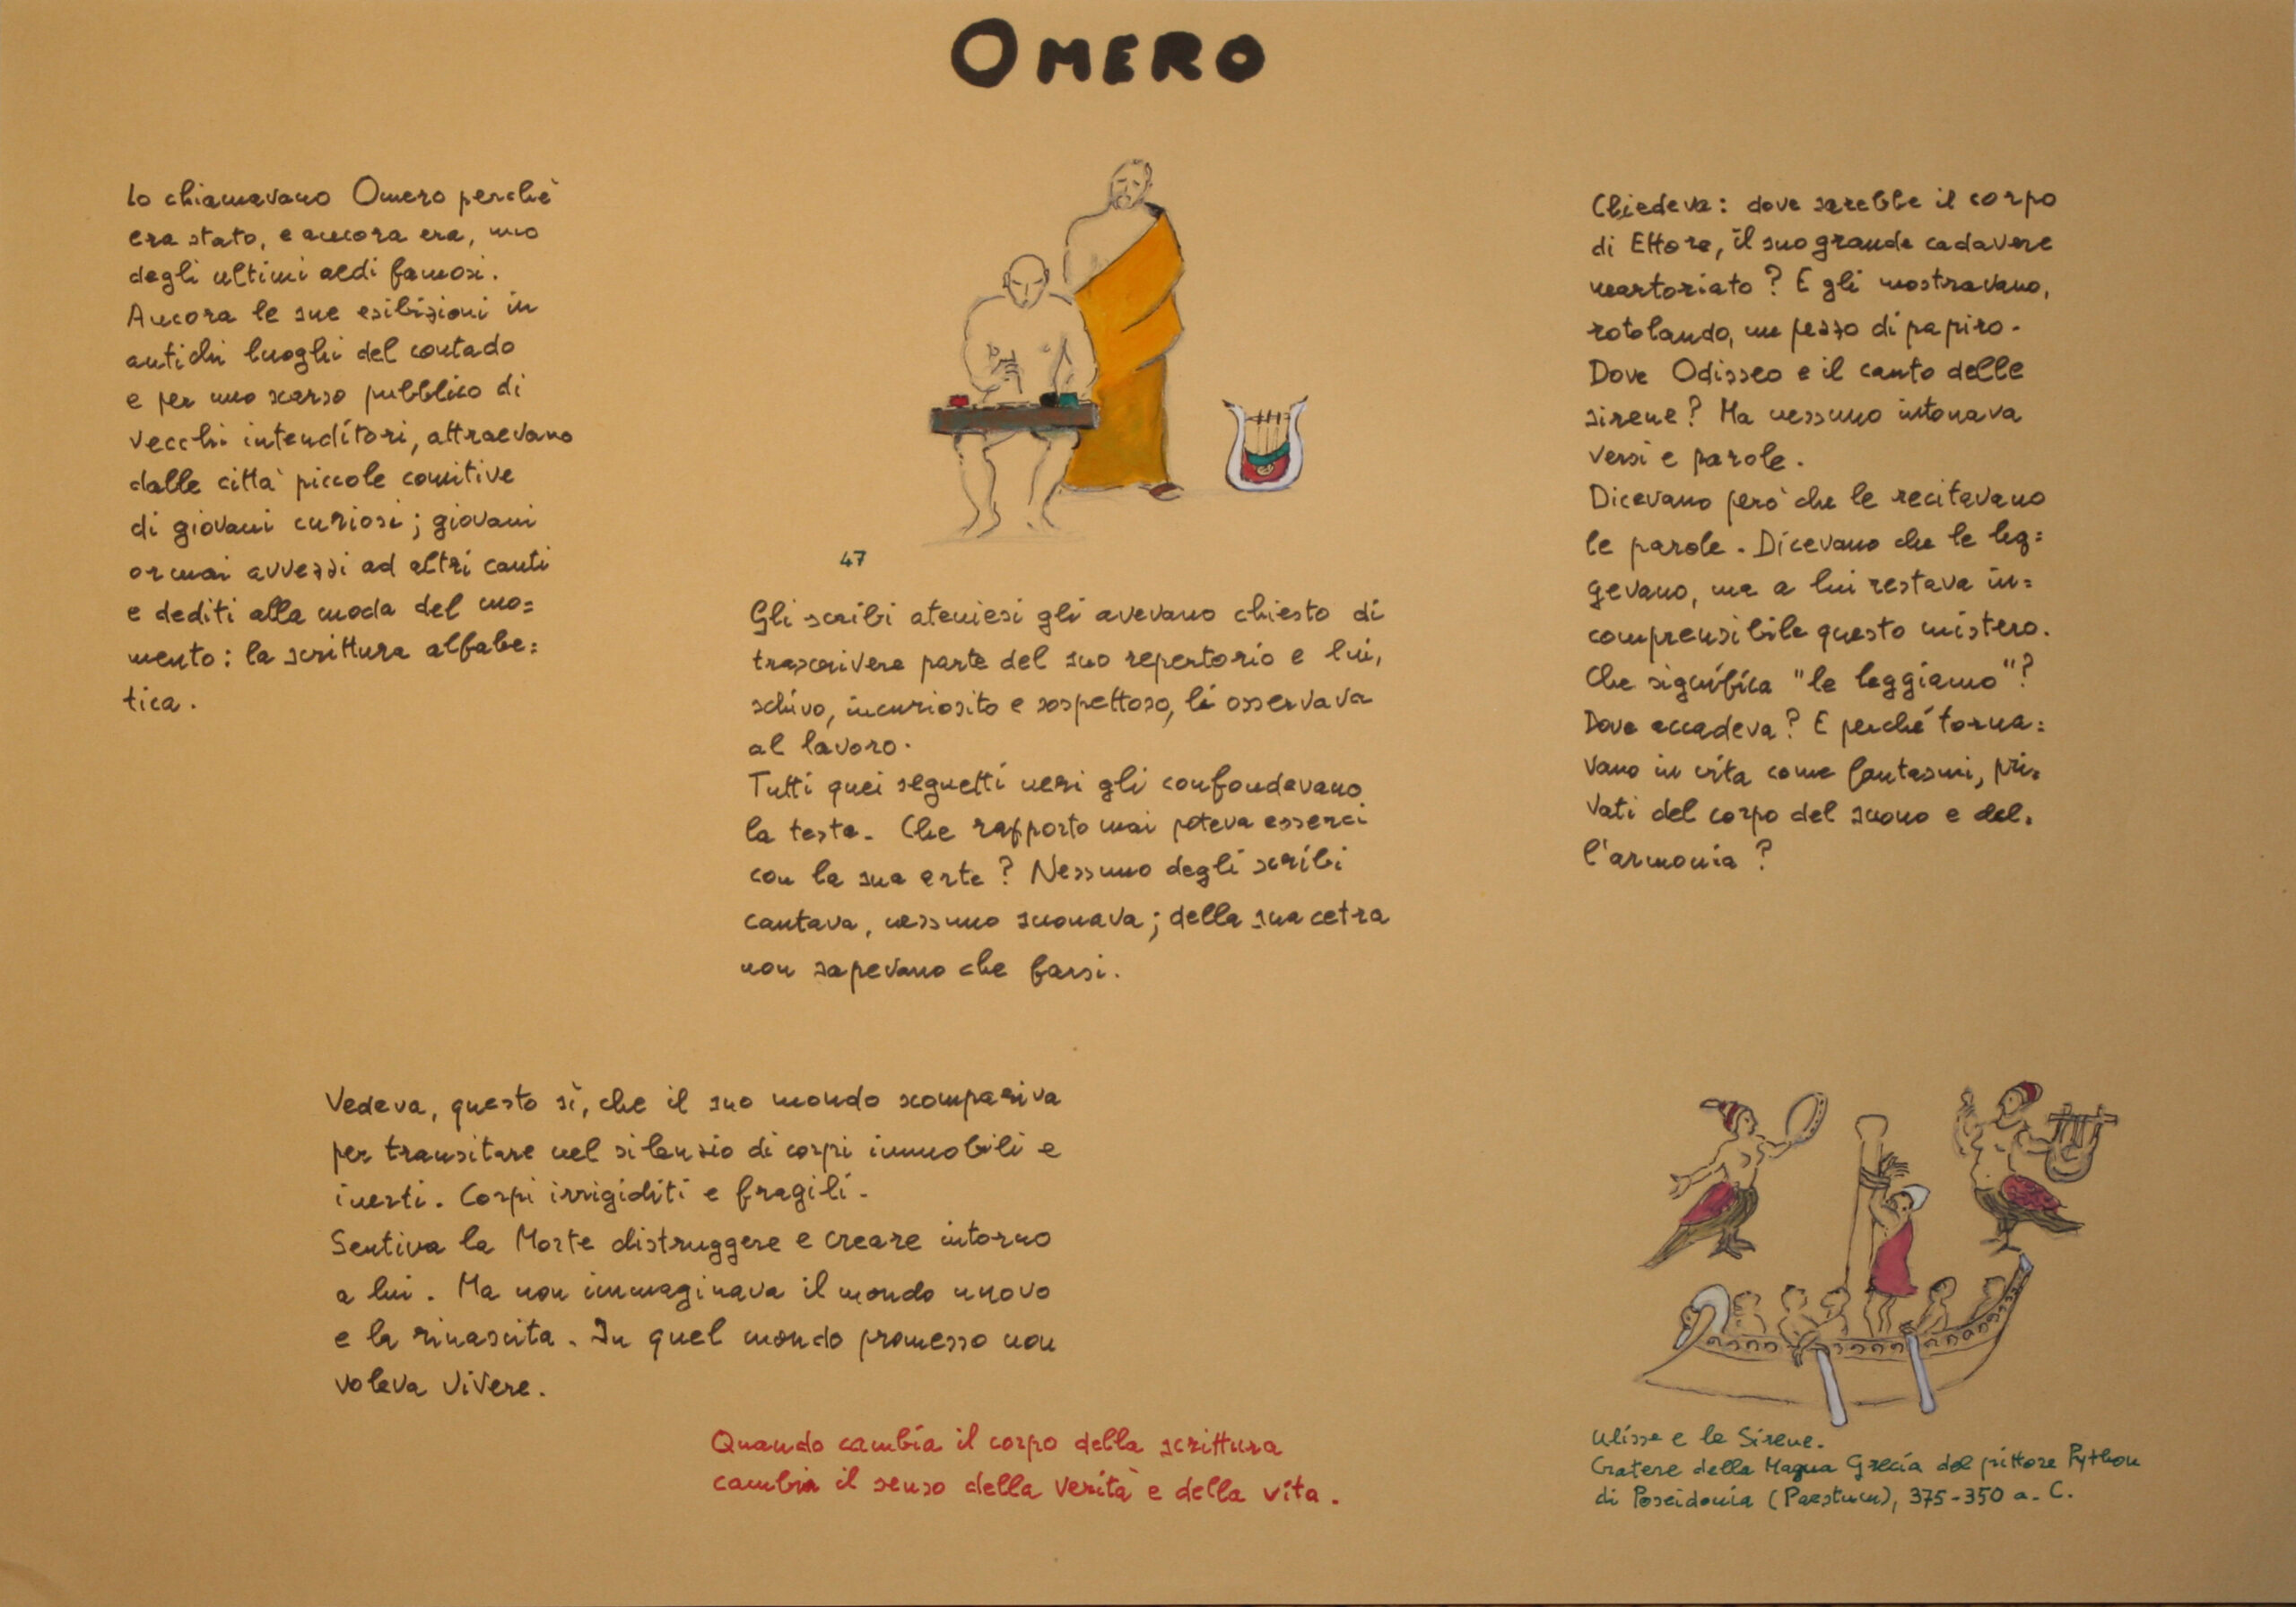 OMERO
Lo chiamavano Omero perchè
era stato, e ancora era, uno
degli ultimi aedi famosi.
Ancora le sue esibizioni in
antichi luoghi del contado
e per uno scarso pubblico di
vecchi intenditori, attraevano
dalle città piccole comitive
di giovani curiosi; giovani
ormai avvezzi ad altri canti
e dediti alla moda del mo=
mento: la scrittura alfabe=
tica.
47
Gli scribi ateniesi gli avevano chiesto di
trascrivere parte del suo repertorio e lui,
schivo, incuriosito e sospettoso, li osservava
al lavoro.
Tutti quei segnetti neri gli confondevano
la testa. Che rapporto mai poteva esserci
con la sua arte? Nessuno degli scribi
cantava, nessuno suonava; della sua cetra
non sapevano che farsi.
Chiedeva: dove sarebbe il corpo
di Ettore, il suo grande cadavere
martoriato? E gli mostravano,
rotolando, un pezzo di papiro.
Dove Odisseo e il canto delle
sirene? Ma nessuno intonava
versi e parole.
Dicevano però che le recitavano
le parole. Dicevano che le leg=
gevano, ma a lui restava in=
comprensibile questo mistero.
Che significa "le leggiamo"?
Dove accadeva? E perché torna=
vano in vita come fantasmi, pri=
vati del corpo del suono e del=
l'armonia?
Vedeva, questo sì, che il suo mondo scompariva
per transitare nel silenzio di corpi immobili e
inerti. Corpi irrigiditi e fragili.
Sentiva la Morte distruggere e creare intorno
a lui. Ma non immaginava il mondo nuovo
e la rinascita. In quel mondo promesso non
voleva vivere.
Quando cambia il corpo della scrittura
cambia il senso della verità e della vita.
Ulisse e le Sirene.
Cratere della Magna Grecia del pittore Python
di Poseidonia (Paestum), 375-350 a. C.